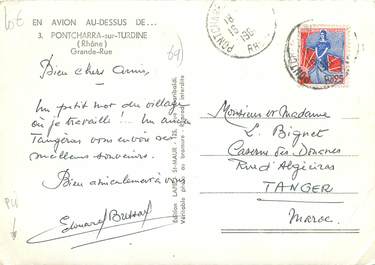 10€
EN AVION AU-DESSUS DE...
3. PONTCHARRA-sur-TURDINE
(Rhône)
Grande-Rue
(69)
Bien chers amis,
Un petit mot du village
où je travaille!... Un ami
Tangérois vous envoie ses
meilleurs souvenirs.
Bien amicalement à vous
Edouard
Edition LAPIE, St-MAUR - 125, rue Garibaldi
Véritable photo au bromure - interdite
PONTCHAR
196
RH
PONTCH
Monsieur et Madame
L. Bignet
Caserne des Douanes
Rue d'Algéciras
TANGER
Maroc.